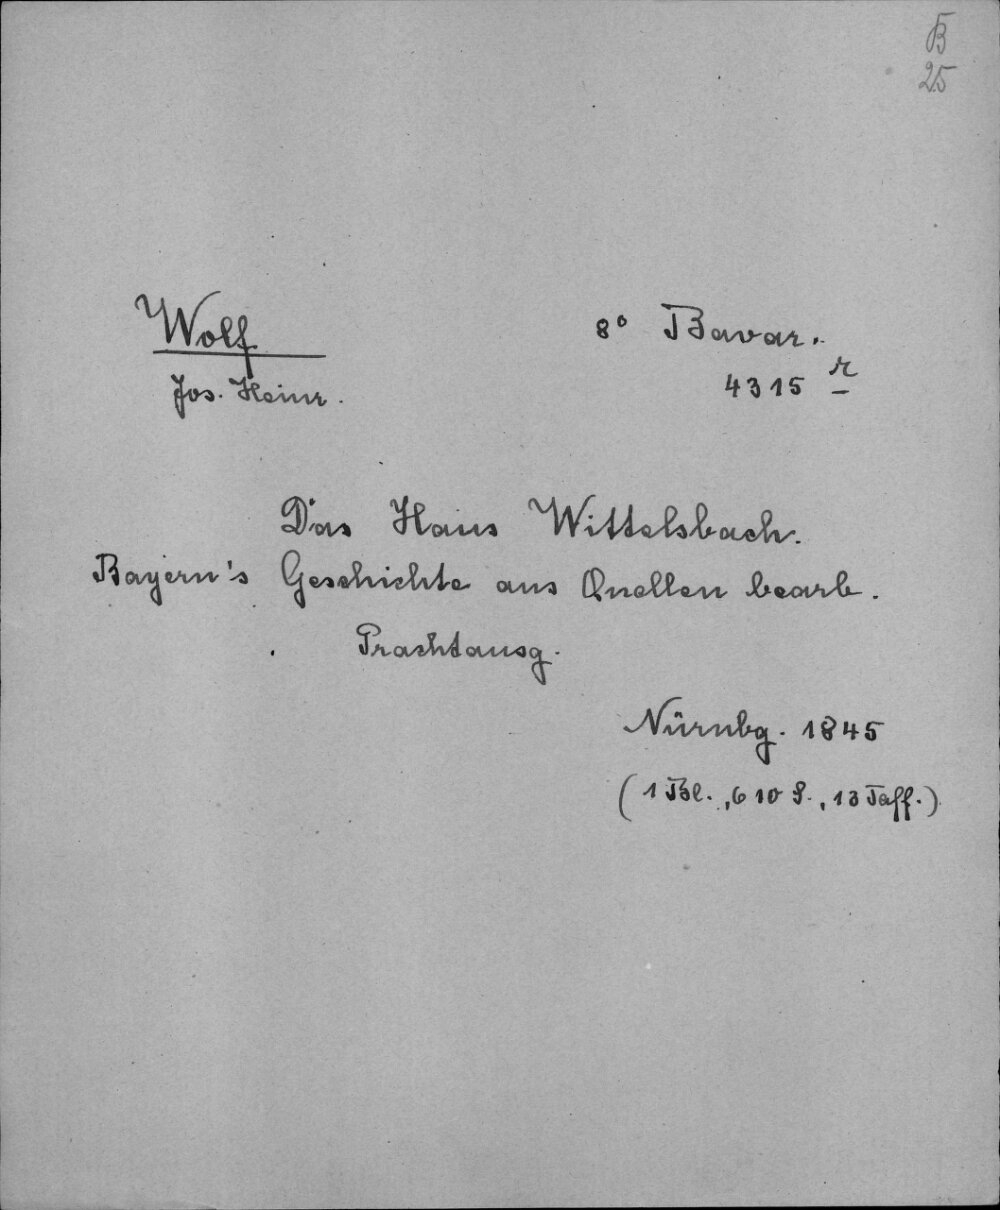 B
25
Wolf
Jos. Heinr.
8° Bavar.
4315 r
Das Haus Wittelsbach.
Bayern's Geschichte aus Quellen bearb.
Prachtausg.
Nürnbg. 1845
(1 Bl., 610 S., 13 Taff.)